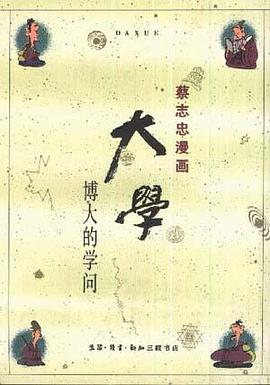 DAXUE
蔡志忠漫画
大學
博大的学问
生活·读书·新知三联书店